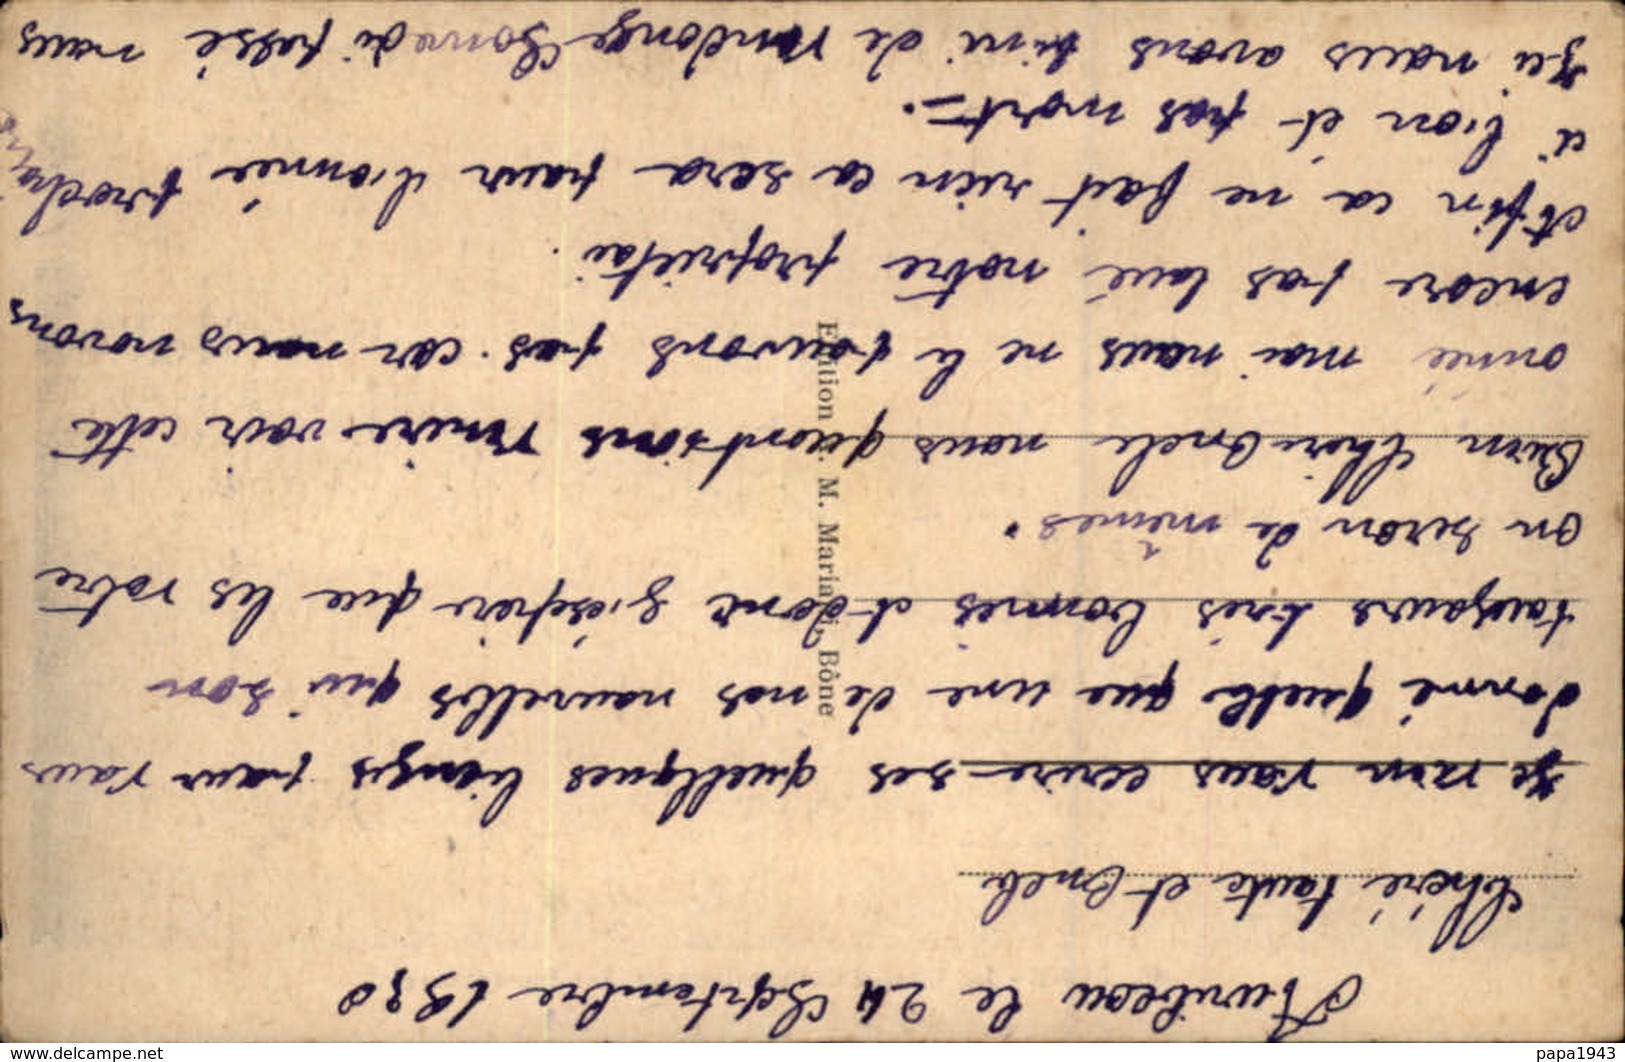 Auribeau le 24 Septembre 1930
Chère tante et Oncle
Je vien vous ecrire ses quelques lignes pour vous
donné quelle que une de nos nouvelles qui son
toujours très bonnes et donc j'iéspère que les votre
on seron de mêmes.
Bien Chère Oncle nous quontions venire voir cette
année mai nous ne le pouvons pas. car nous navons
encore pas loué notre proprietai.
Afin ca ne fait rien ca sera pour l'année prochaine
si l'on et pas mort.
Ju nous avons fini de vendange Samedi passé nous
Edition . M. Maria , Bône
www.delcampe.net
papa1943